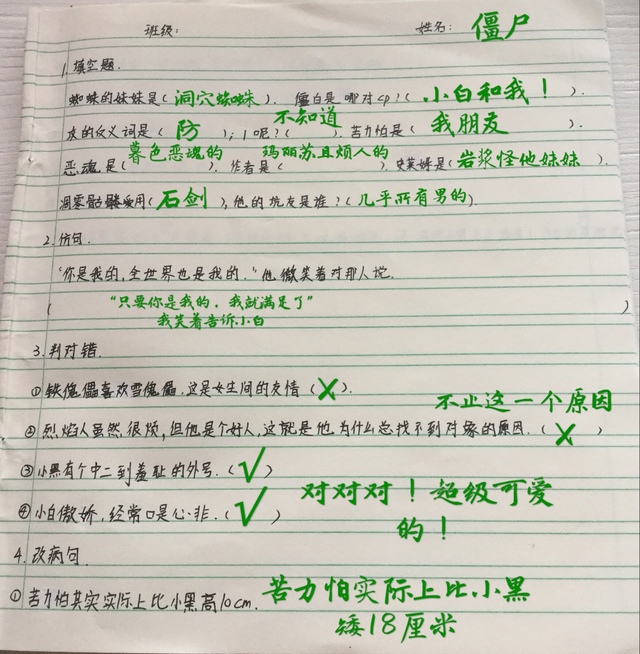 班级： 姓名： 僵尸
1.填空题.
蜘蛛的妹妹是（洞穴蜘蛛）. 僵白是哪对cp？（小白和我！）.
灰的反义词是（防）；1呢？（不知道）. 苦力怕是（我朋友）.
恶魂是（暮色恶魂的）, 作者是（玛丽苏且烦人的）, 史莱姆是（岩浆怪他妹妹）.
凋零骷髅爱用（石剑）, 他的坑友是谁？（几乎所有男的）.
2.仿句.
“你是我的, 全世界也是我的.”他微笑着对那人说.
（“只要你是我的，我就满足了”
我笑着告诉小白）
3.判对错.
①铁傀儡喜欢雪傀儡. 这是女生间的友情（X）.
不止这一个原因
②烈焰人虽然很烦, 但他是个好人, 这就是他为什么总找不到对象的原因.（X）
③小黑有个中二到羞耻的外号.（√）
④小白傲娇, 经常口是心非.（√）
对对对！超级可爱
的！
4.改病句.
①苦力怕其实实际上比小黑高10cm.
苦力怕实际上比小黑
矮18厘米